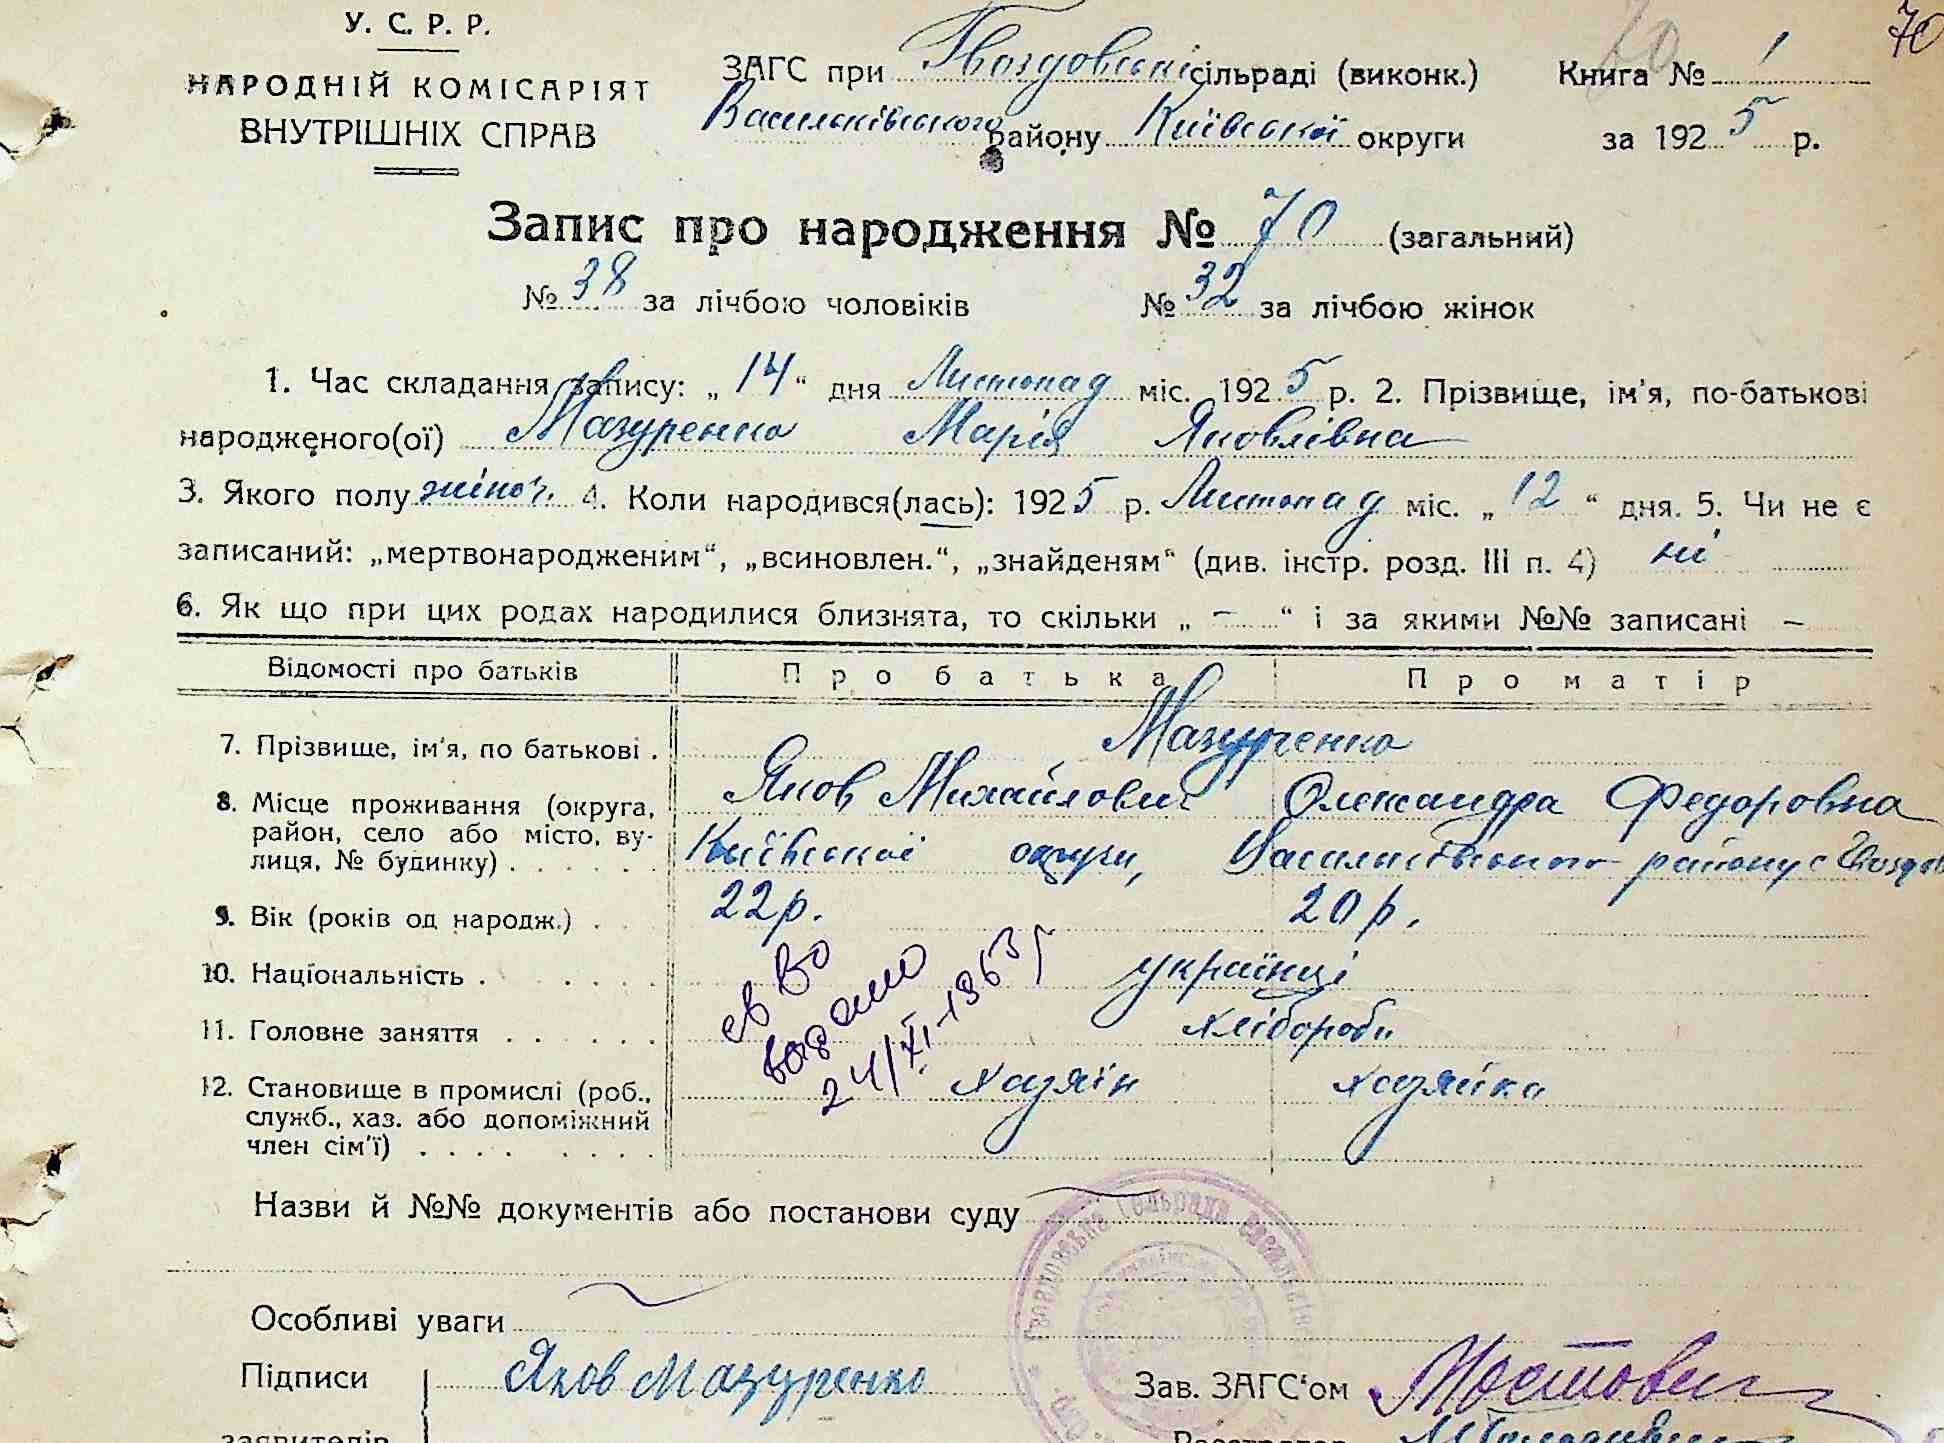 У. С. Р. Р.
НАРОДНІЙ КОМІСАРІЯТ
ВНУТРІШНІХ СПРАВ
70
70
ЗАГС при Гвоздовській сільраді (виконк.) Книга № 1
Васильківського району Київської округи за 1925 р.
Запис про народження № 70 (загальний)
№ 38 за лічбою чоловіків № 32 за лічбою жінок
1. Час складання запису: „14“ дня Листопад міс. 1925 р. 2. Прізвище, ім'я, по-батькові
народженого(ої) Мазуренко Марія Яковлівна
3. Якого полу жіноч. 4. Коли народився(лась): 1925 р. Листопад міс. „12“ дня. 5. Чи не є
записаний: „мертвонародженим“, „всиновлен.“, „знайденям“ (див. інстр. розд. III п. 4) ні
6. Як що при цих родах народилися близнята, то скільки „ – “ і за якими №№ записані –
Відомості про батьків Про батька Про матір
7. Прізвище, ім'я, по батькові . Мазуренко
Яков Михайлович Олександра Федоровна
8. Місце проживання (округа, район, село або місто, ву-
лиця, № будинку) . . . . . . Київської округи, Васильківського району с Гвоздов
9. Вік (років од народж.) . . 22р. 20р.
10. Національність . . . . . українці
11. Головне заняття . . . . . . хлібороби
12. Становище в промислі (роб., хазяїн хазяйка
служб., хаз. або допоміжний
член сім'ї) . . . . . . . .
св во
видано
24/XI-1963 р
Назви й №№ документів або постанови суду
Особливі уваги
Підписи Яков Мазуренко Зав. ЗАГС'ом
заявителів